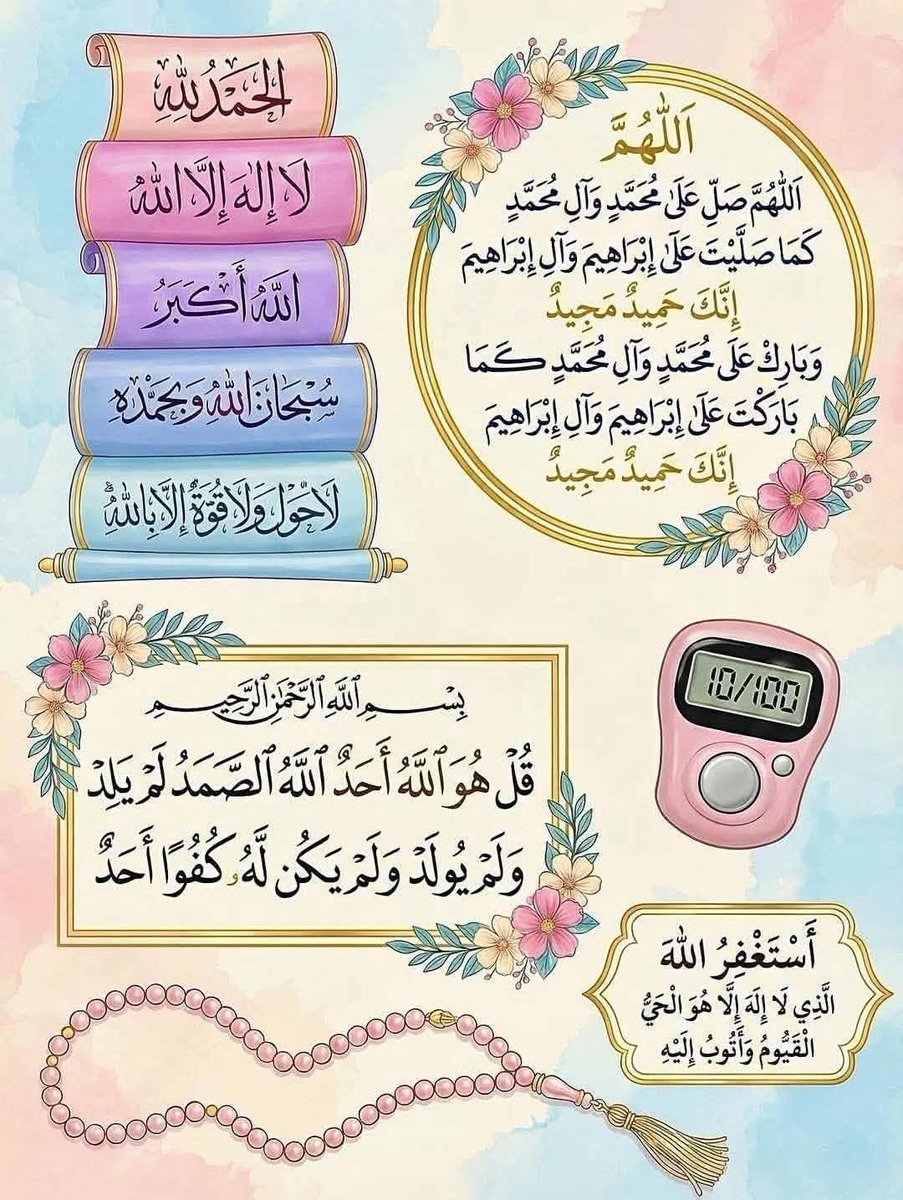 الحَمْدُ لِلّٰهِ
لَا إِلٰهَ إِلَّا اللهُ
اللهُ أَكْبَرُ
سُبْحَانَ اللهِ وَبِحَمْدِهِ
لَا حَوْلَ وَلَا قُوَّةَ إِلَّا بِاللهِ
اَللّٰهُمَّ
اَللّٰهُمَّ صَلِّ عَلَىٰ مُحَمَّدٍ وَآلِ مُحَمَّدٍ
كَمَا صَلَّيْتَ عَلَىٰ إِبْرَاهِيمَ وَآلِ إِبْرَاهِيمَ
إِنَّكَ حَمِيدٌ مَجِيدٌ
وَبَارِكْ عَلَى مُحَمَّدٍ وَآلِ مُحَمَّدٍ كَمَا
بَارَكْتَ عَلَىٰ إِبْرَاهِيمَ وَآلِ إِبْرَاهِيمَ
إِنَّكَ حَمِيدٌ مَجِيدٌ
بِسْمِ ٱللَّهِ ٱلرَّحْمَٰنِ ٱلرَّحِيمِ
قُلْ هُوَ ٱللَّهُ أَحَدٌ ٱللَّهُ ٱلصَّمَدُ لَمْ يَلِدْ
وَلَمْ يُولَدْ وَلَمْ يَكُن لَّهُۥ كُفُوًا أَحَدٌ
10/100
أَسْتَغْفِرُ اللهَ
الَّذِي لَا إِلَهَ إِلَّا هُوَ الْحَيُّ
الْقَيُّومُ وَأَتُوبُ إِلَيْهِ